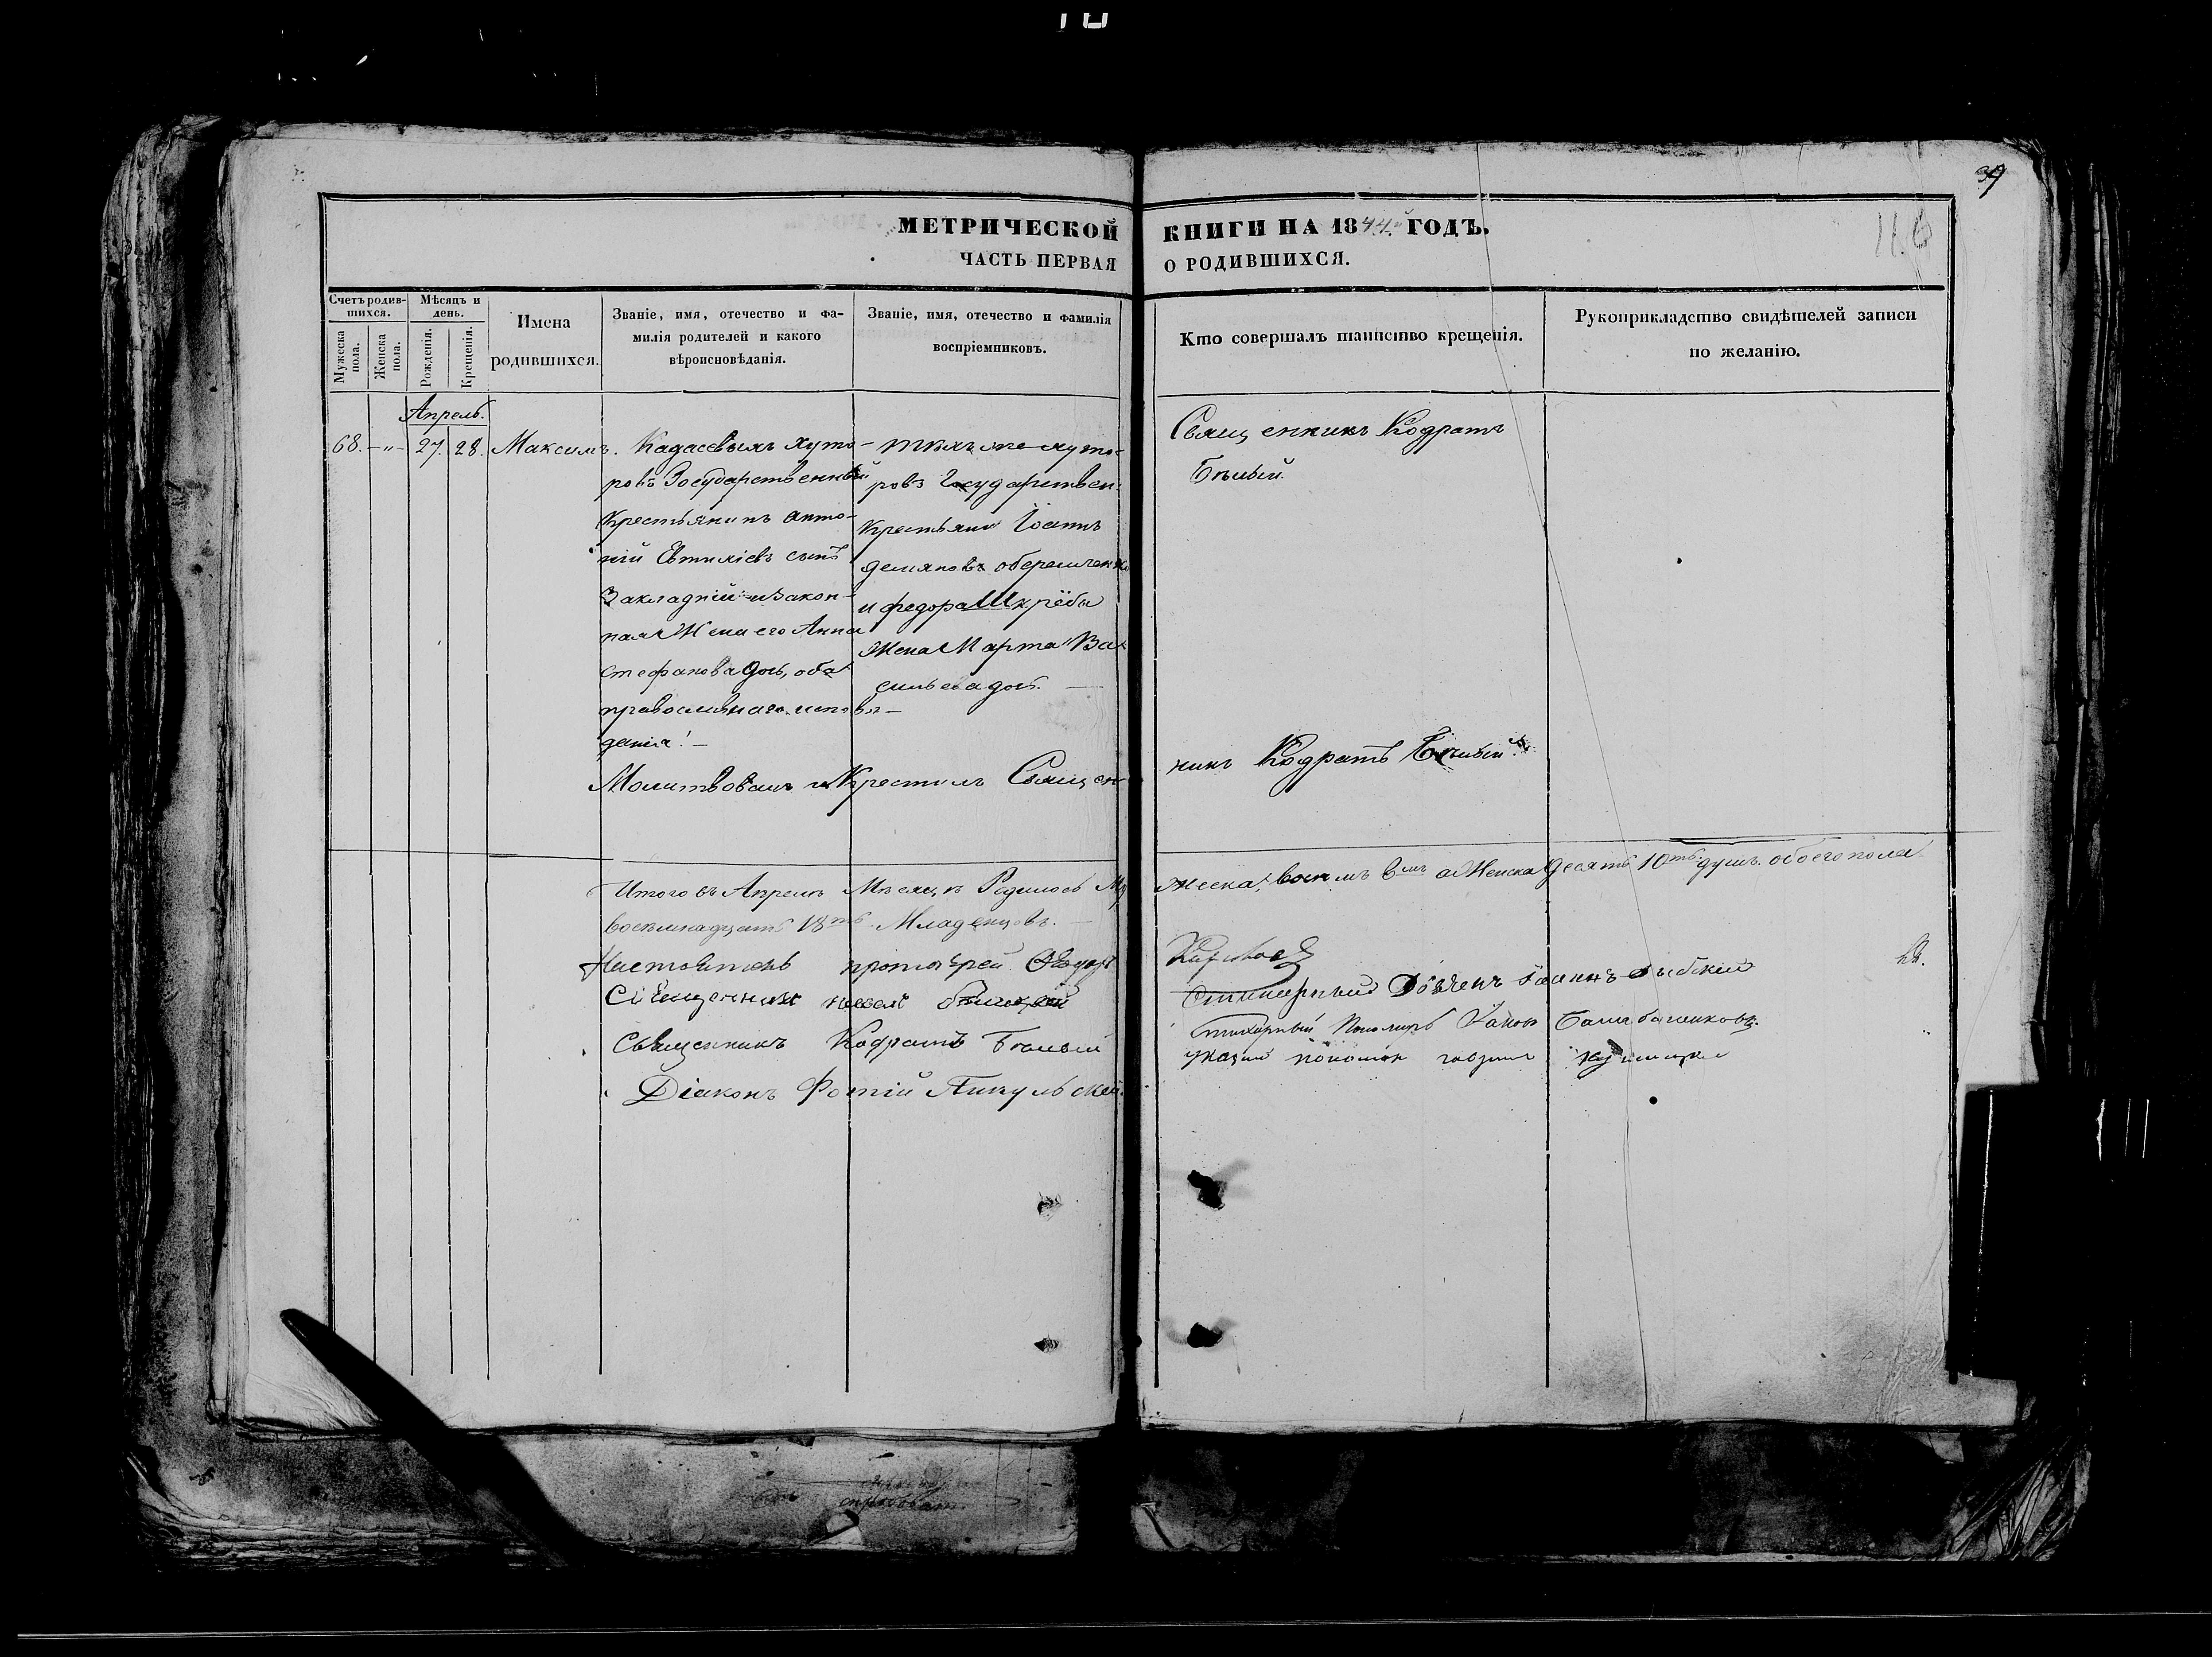 39
МЕТРИЧЕСКОЙ КНИГИ НА 1844й ГОДЪ.
ЧАСТЬ ПЕРВАЯ О РОДИВШИХСЯ.
Счетъ родив-
шихся.
Мужеска пола.
Женска пола.
Мѣсяцъ и
день.
Рожденія.
Крещенія.
Имена
родившихся.
Званіе, имя, отечество и фа-
милія родителей и какого
вѣроисповѣданія.
Званіе, имя, отечество и фамилія
воспріемниковъ.
Кто совершалъ таинство крещенія.
Рукоприкладство свидѣтелей записи
по желанію.
Апрель.
68. -„- 27. 28. Максимъ.
Кадаевыхъ хуто-
ровъ Государственный
Крестьянинъ Анто-
ній Евтихіевъ сынъ
Закладній и закон-
ная Жена его Анна
Стефанова дочь, оба
православнаго исповѣ-
данія. —
тѣхъ же хуто-
ровъ Государствен:
Крестьянин Іоаннъ
Демяновъ
и федора Шкрёбы
Жена Марта Ва-
сильева дочь. —
Священникъ Кодратъ
Бѣлый.
Молитвовалъ и Крестилъ Священ-
никъ Кодратъ Бѣлый
Итого въ Апрелѣ Мѣсяцѣ Родилось Му
жеска, восемь 8мь а Женска Десять 10ть душъ. обоего пола
восемнадцать 18ть Младенцовъ. —
Настоятель протоіерей
Священникъ
Священникъ Кодратъ Бѣлый
Діаконъ Фотій Пикульскій.
Стихарный Іоаннъ
Стихарный Пономарь